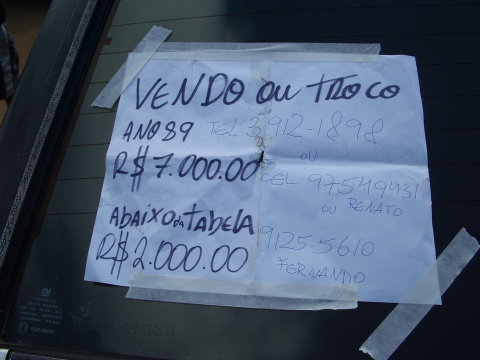 VENDO OU TROCO
ANO 89 TEL 3912-1898
OU
R$ 7.000.00 CEL 97549431
OU RENATO
ABAIXO DA TABELA
9125-5610
R$ 2.000.00 FERNANDO